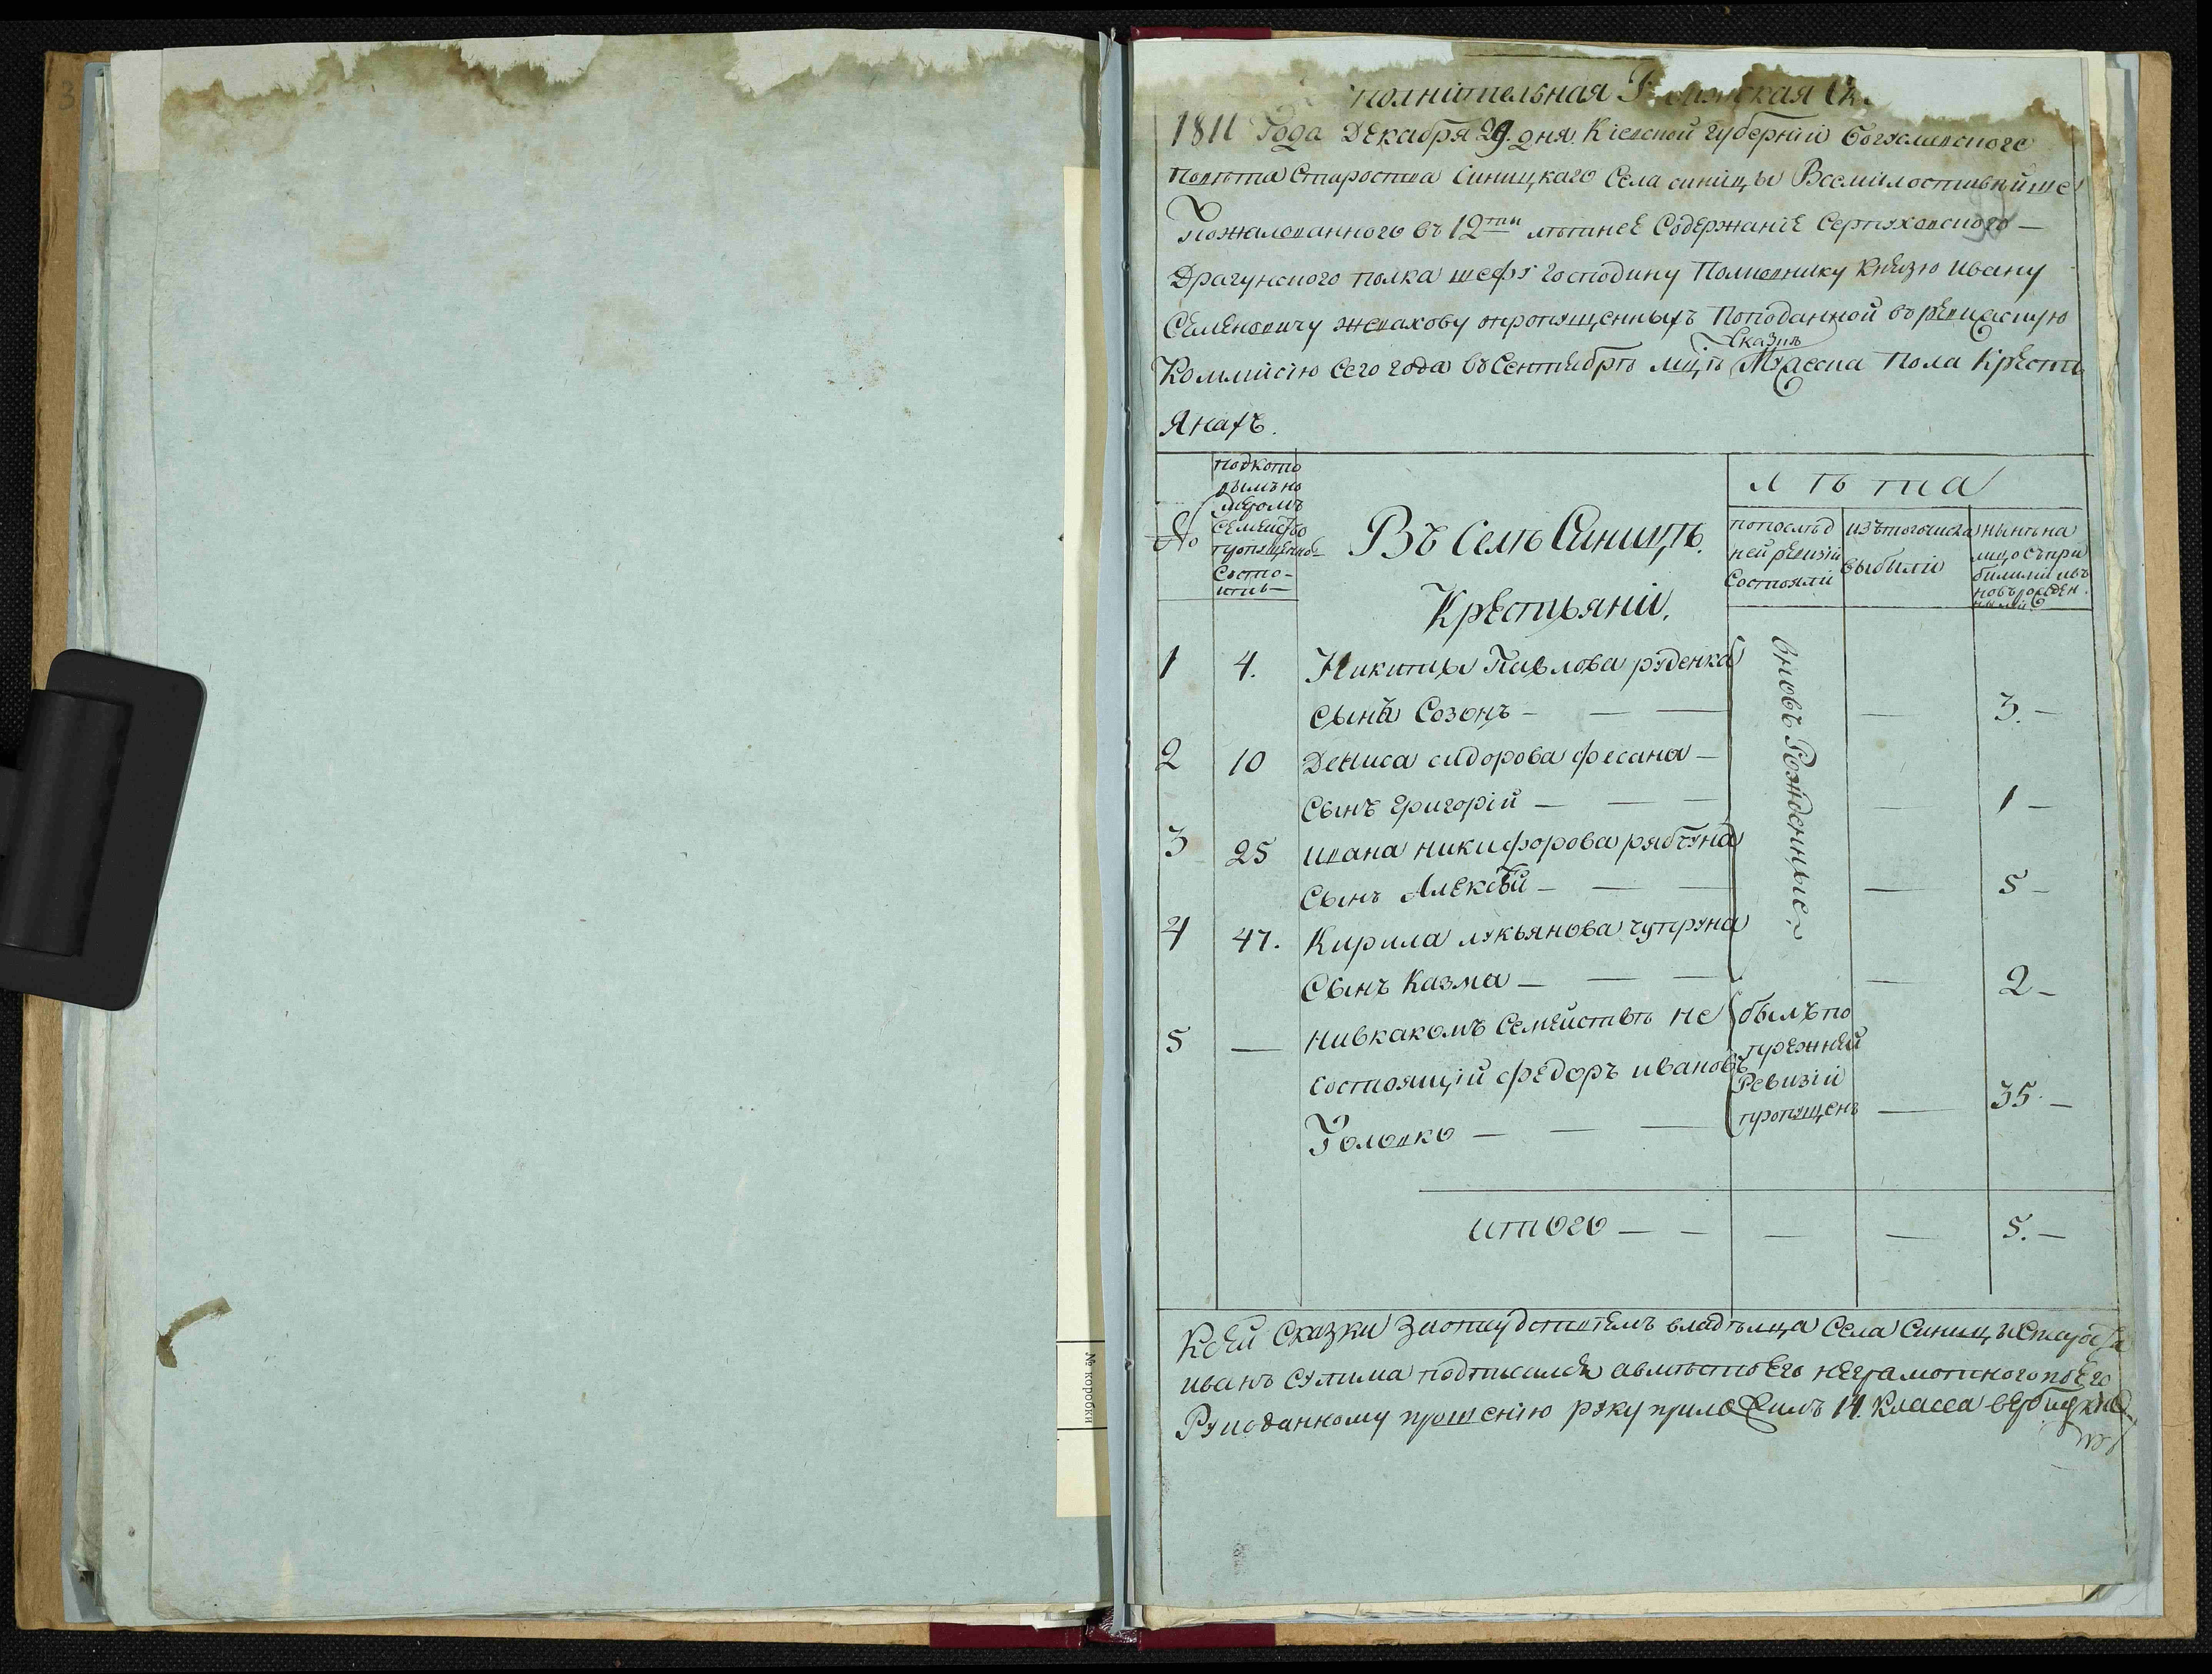 полнительная Ревижская Ск
1811 Года Декабря 29. дня. Кіевской губерніи Богуславского
Повѣта Староства Синицкаго Села синицы Всемилостивѣйше
Пожалованного въ 12ти лѣтнее Содержаніе Серпуховского —
Драгунского полка шефу господину Полковнику Князю Ивану
Семеновичу жевахову опропущенныхъ Поподанной въ ревизскую
Сказкѣ
Коммисію Сего года въ Сентябрѣ мцѣ Мужеска Пола Крести
Янахъ.
№
подкото
рымъ но
меромъ
Семейство
пропущенное
Состо-
итъ
Въ Селѣ Синицѣ.
Крестьяніи.
лѣта
попослѣд
ней ревизіи
Состояли
изътогочисла
выбыли
нынѣ на
лицо съпри
былими ивъ
новърожден
ными
1 4. Никиты Павлова руденка
Сынъ Созонъ — — — — 3. —
2 10 Дениса сидорова фесана —
Сынъ Григорій — — — — 1 —
3 25 ивана никифорова рябчуна
Сынъ Алексѣй — — — — 5 —
4 47. Кирила лукьянова чупруна
Сынъ Казма — — — — 2 —
вновъ Рожденные
5 — нивкакомъ Семействѣ не
состоящій федоръ ивановъ
Головко — — — — 35. —
былъ по
прежней
Ревизіи
пропущенъ
итого — — — — 5. —
Ксей Сказки Заотсудствіемъ владѣлца Села Синицы Староста
иванъ сулима подписался авмѣсто Его неграмотного по Его
Рукоданному прошенію руку приложилъ 14. Класса вербицкий
№ коробки
3